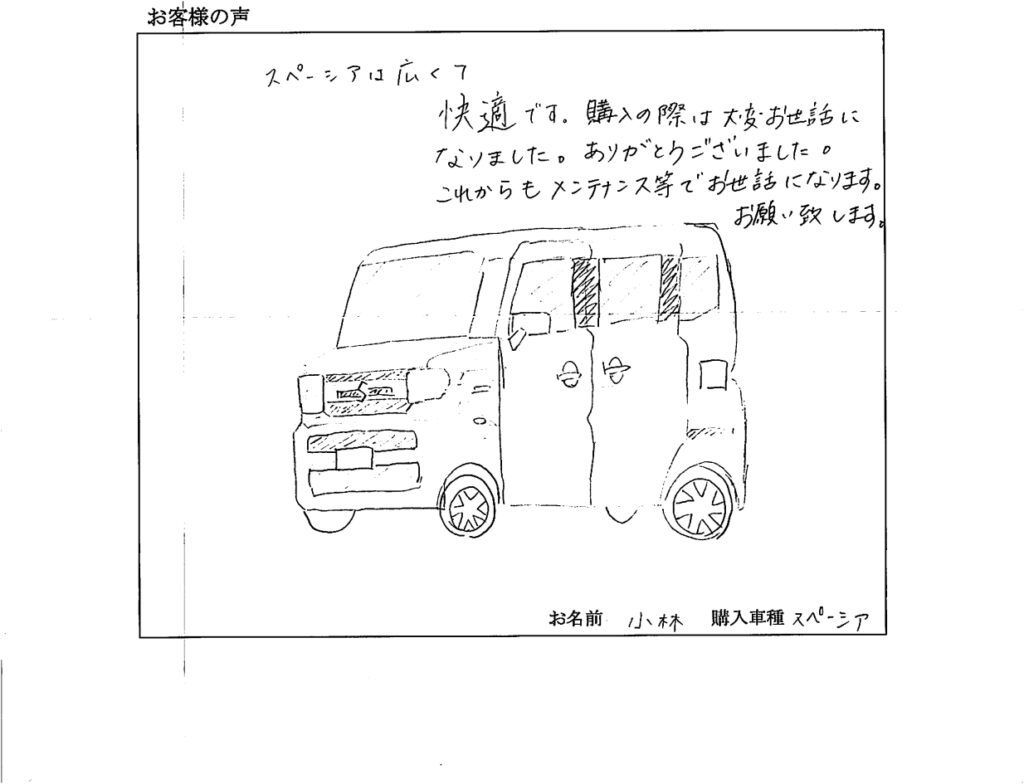 お客様の声
スペーシアは広くて
快適です。購入の際は大変お世話に
なりました。ありがとうございました。
これからもメンテナンス等でお世話になります。
お願い致します。
お名前 小林 購入車種 スペーシア